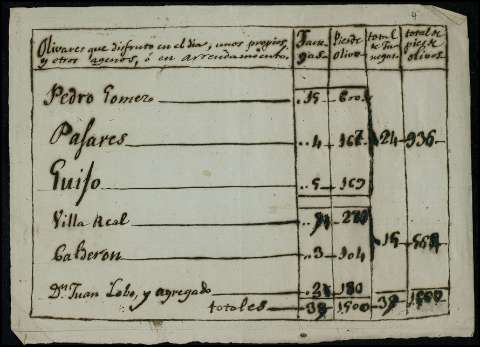 4
Olivares que disfruto en el dia, unos propios,
y otros agenos, ó en arrendamiento.
Fanegas. Pies de Olivo. total de Fanegas. total de pies de olivos
Pedro Gomez 15
Pasares 4 167 24 936
Guiso 5 169
Villa Real
Calderon 3 104 15
Dn. Juan Lobo, y agregado 180
totales 39 1500 39 1500